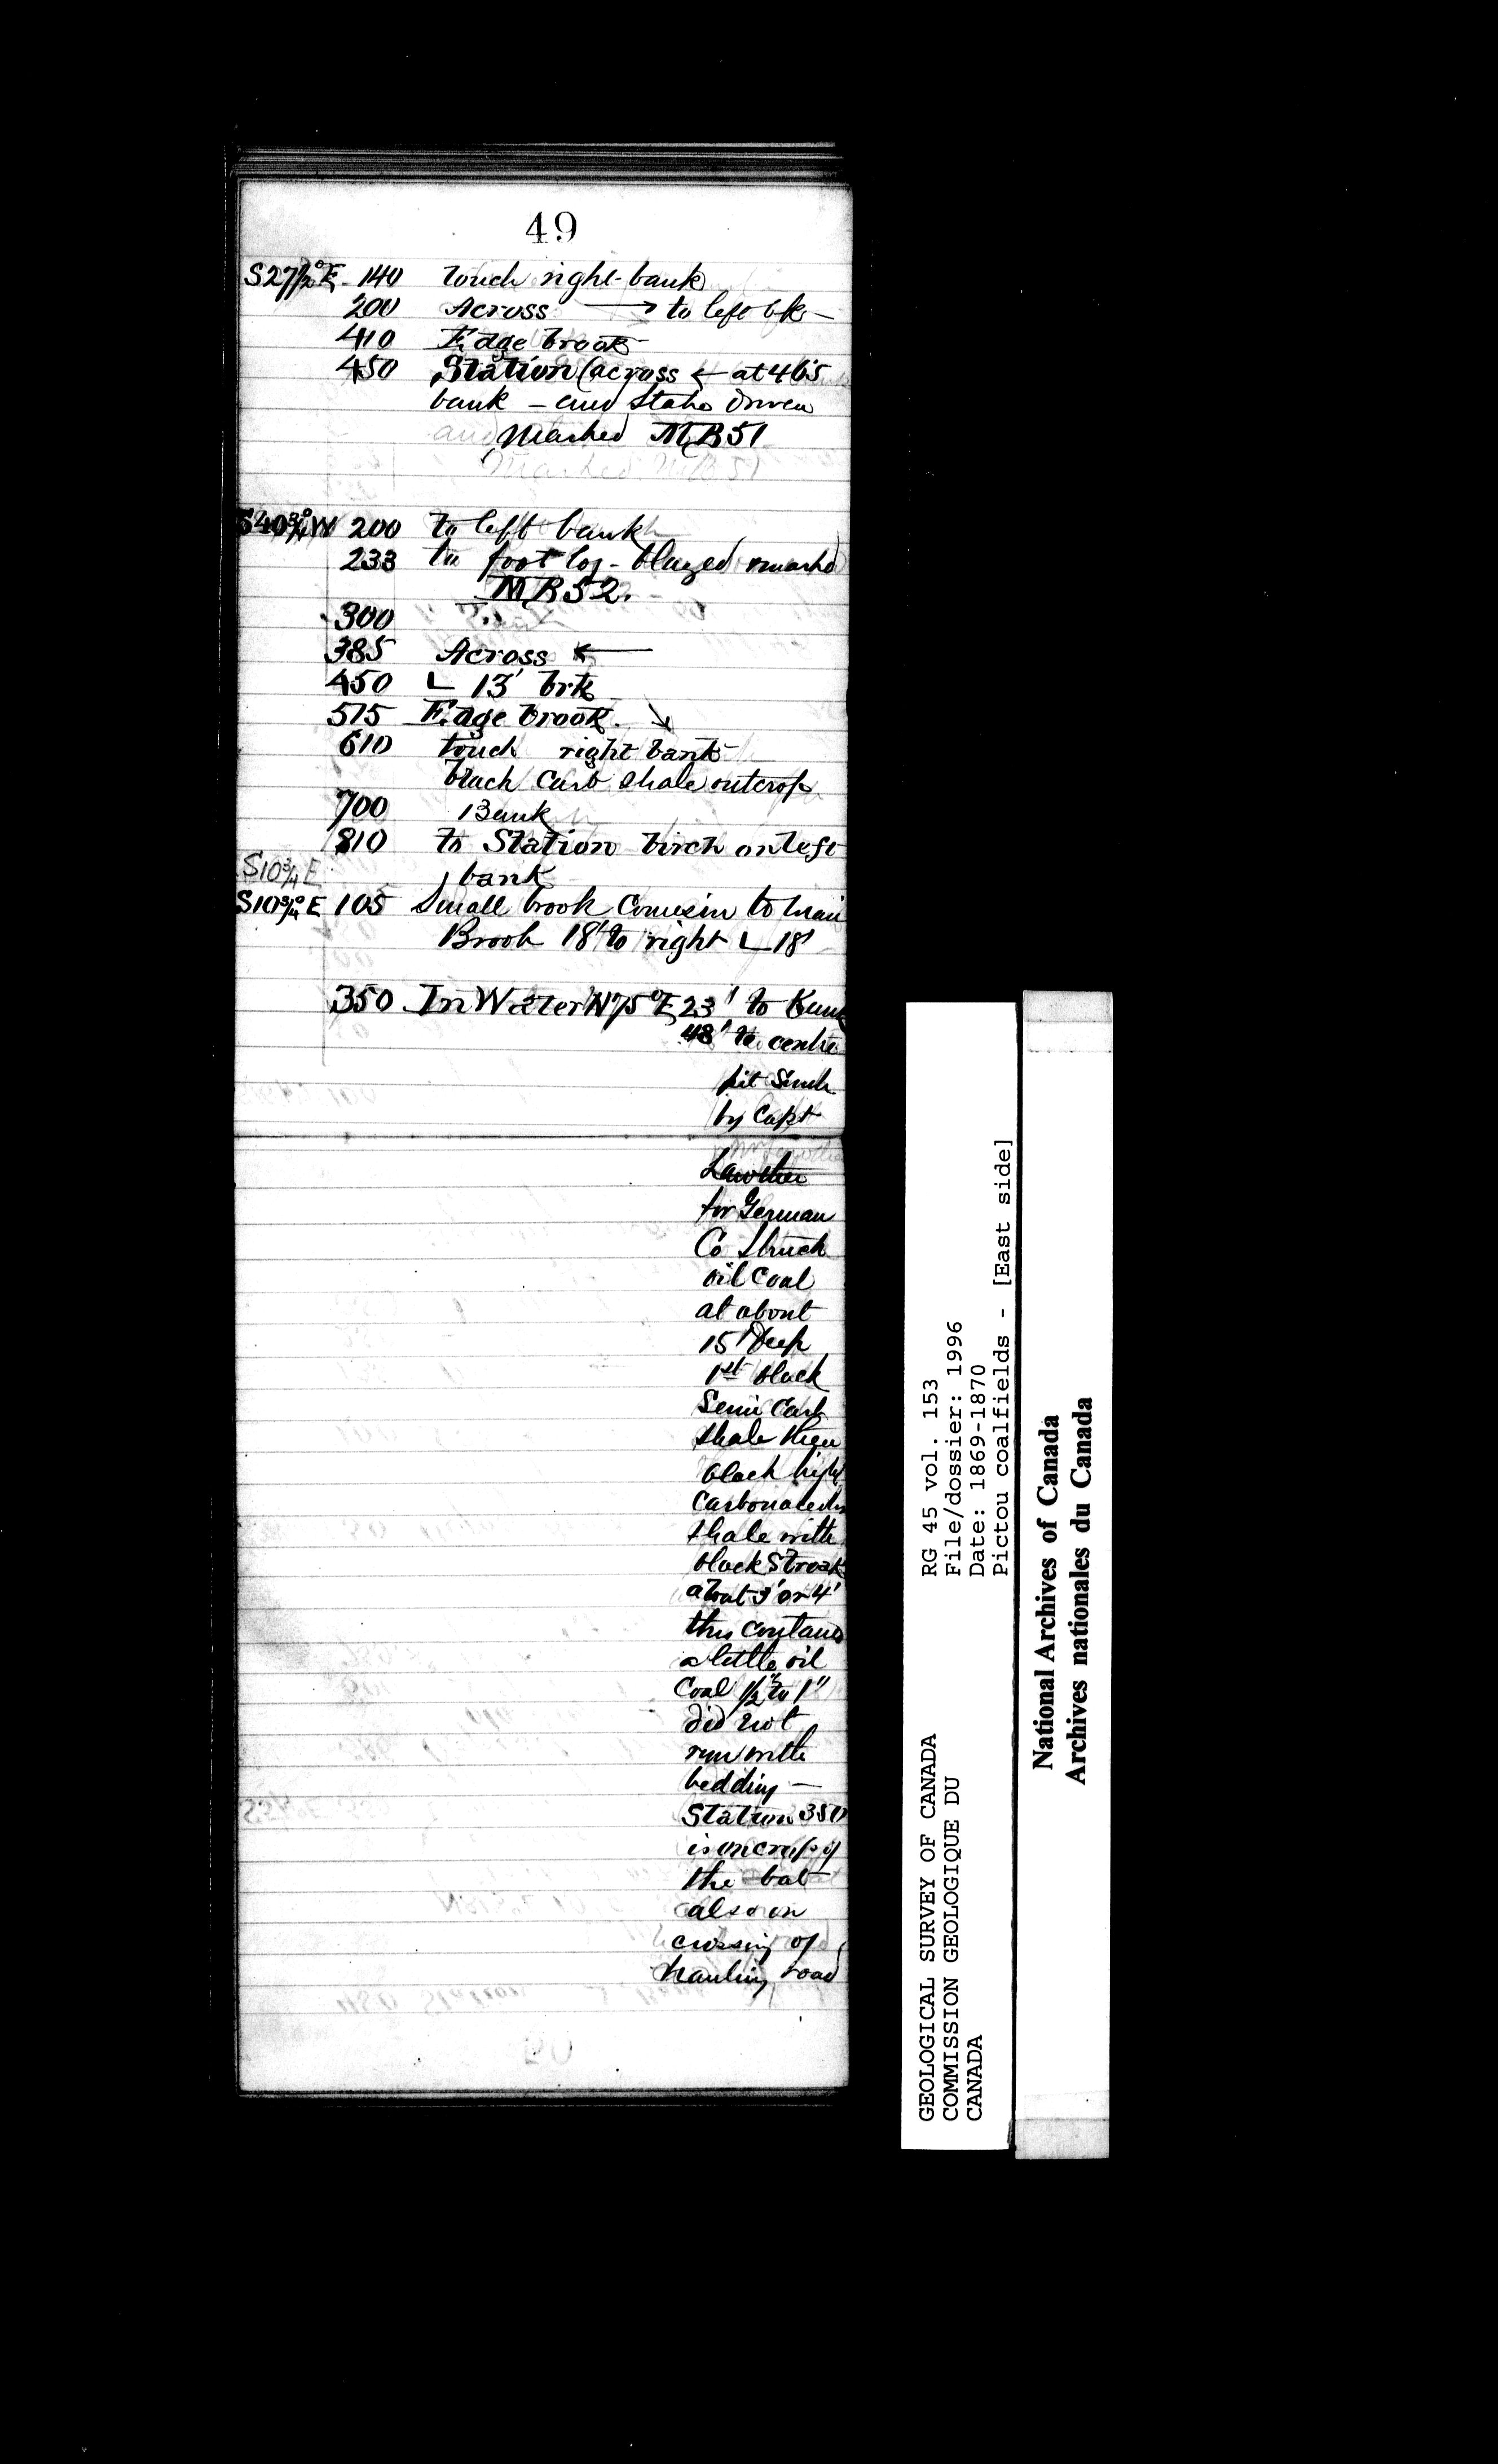 49
S27½°E 140 touch right-bank
200 Across → to left bk —
410 Edge brook
450 Station (across ← at 465
bank — and Stake driven
Marked MB51
Marked MB51
S40¾°W 200 to left bank
233 to foot log - blazed & marked
MB52.
300
385 Across ←
450 ∟ 13' brk
515 Edge brook. ↘
610 touch right bank
black Carb shale outcrop
700 Bank
810 to Station birch on left
S10¾ E
bank
S10¾°E 105 Small brook Comes in to main
Brook 18' to right ∟ 18'
350 In Water N75°E 23' to bank
48' to centre
pit Sunk
by Capt
Lawther
for German
Co struck
oil Coal
at about
15' deep
1st black
Semi Carb
shale then
black high
Carbonaceous
shale with
black Streak
about 3' or 4'
this contains
a little oil
Coal ½" to 1"
did not
run with
bedding —
Station 350
is on crop of
the bat
also on
crossing of
hauling road
GEOLOGICAL SURVEY OF CANADA RG 45 vol. 153
COMMISSION GEOLOGIQUE DU File/dossier: 1996
CANADA Date: 1869-1870
Pictou coalfields - [East side]
National Archives of Canada
Archives nationales du Canada